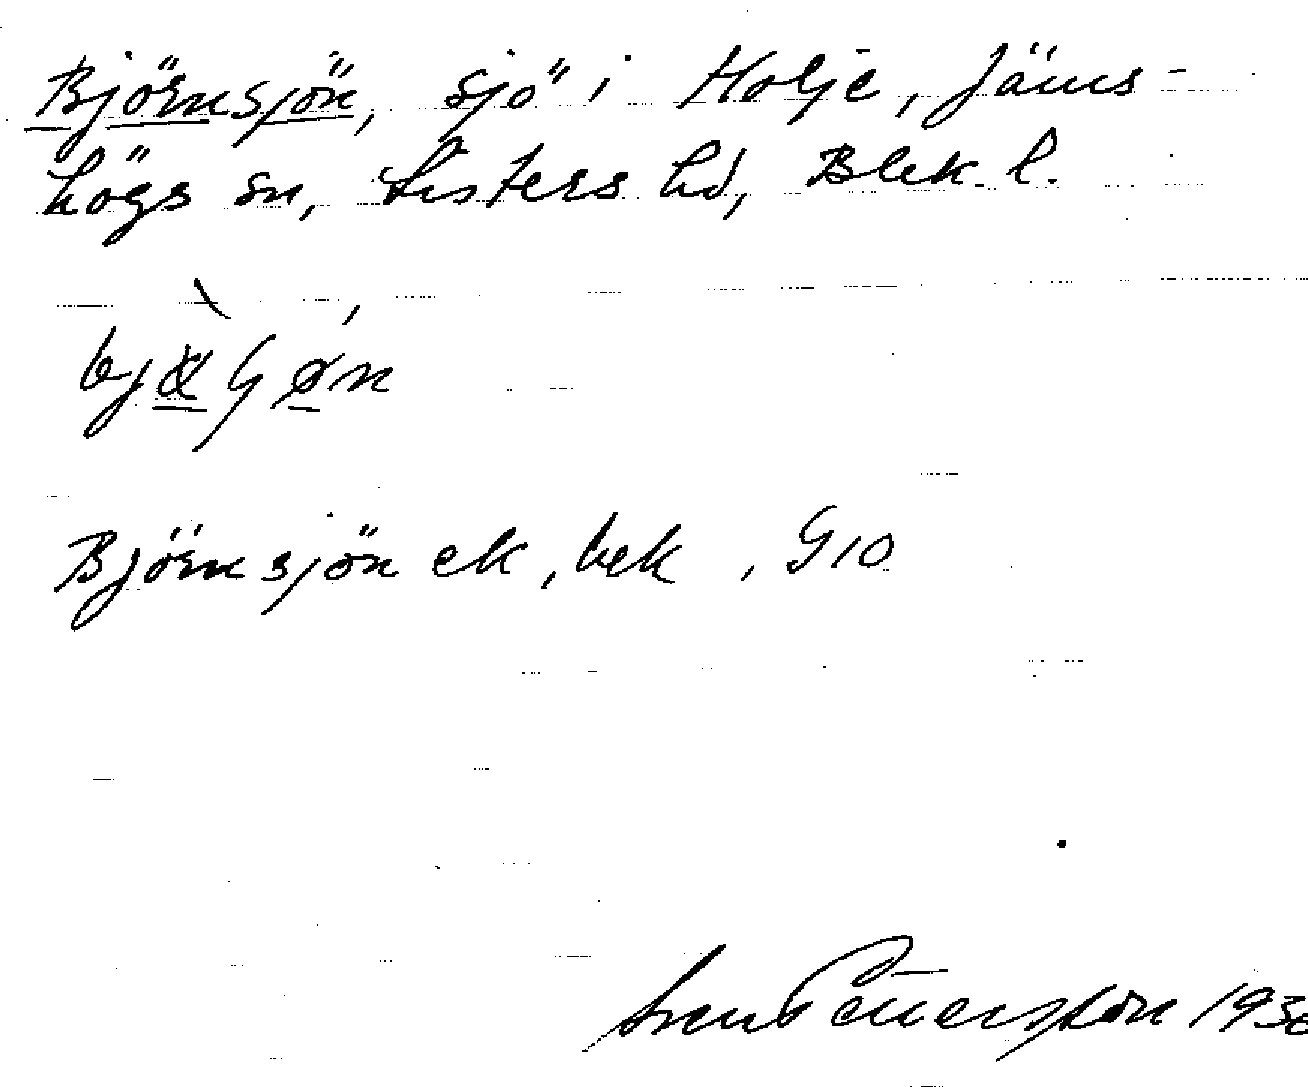 Björnsjön, sjö i Holje, Jäms-
högs sn, Listers hd, Blek. l.
Björnsjön ek, bek, G10
Sven Pettersson